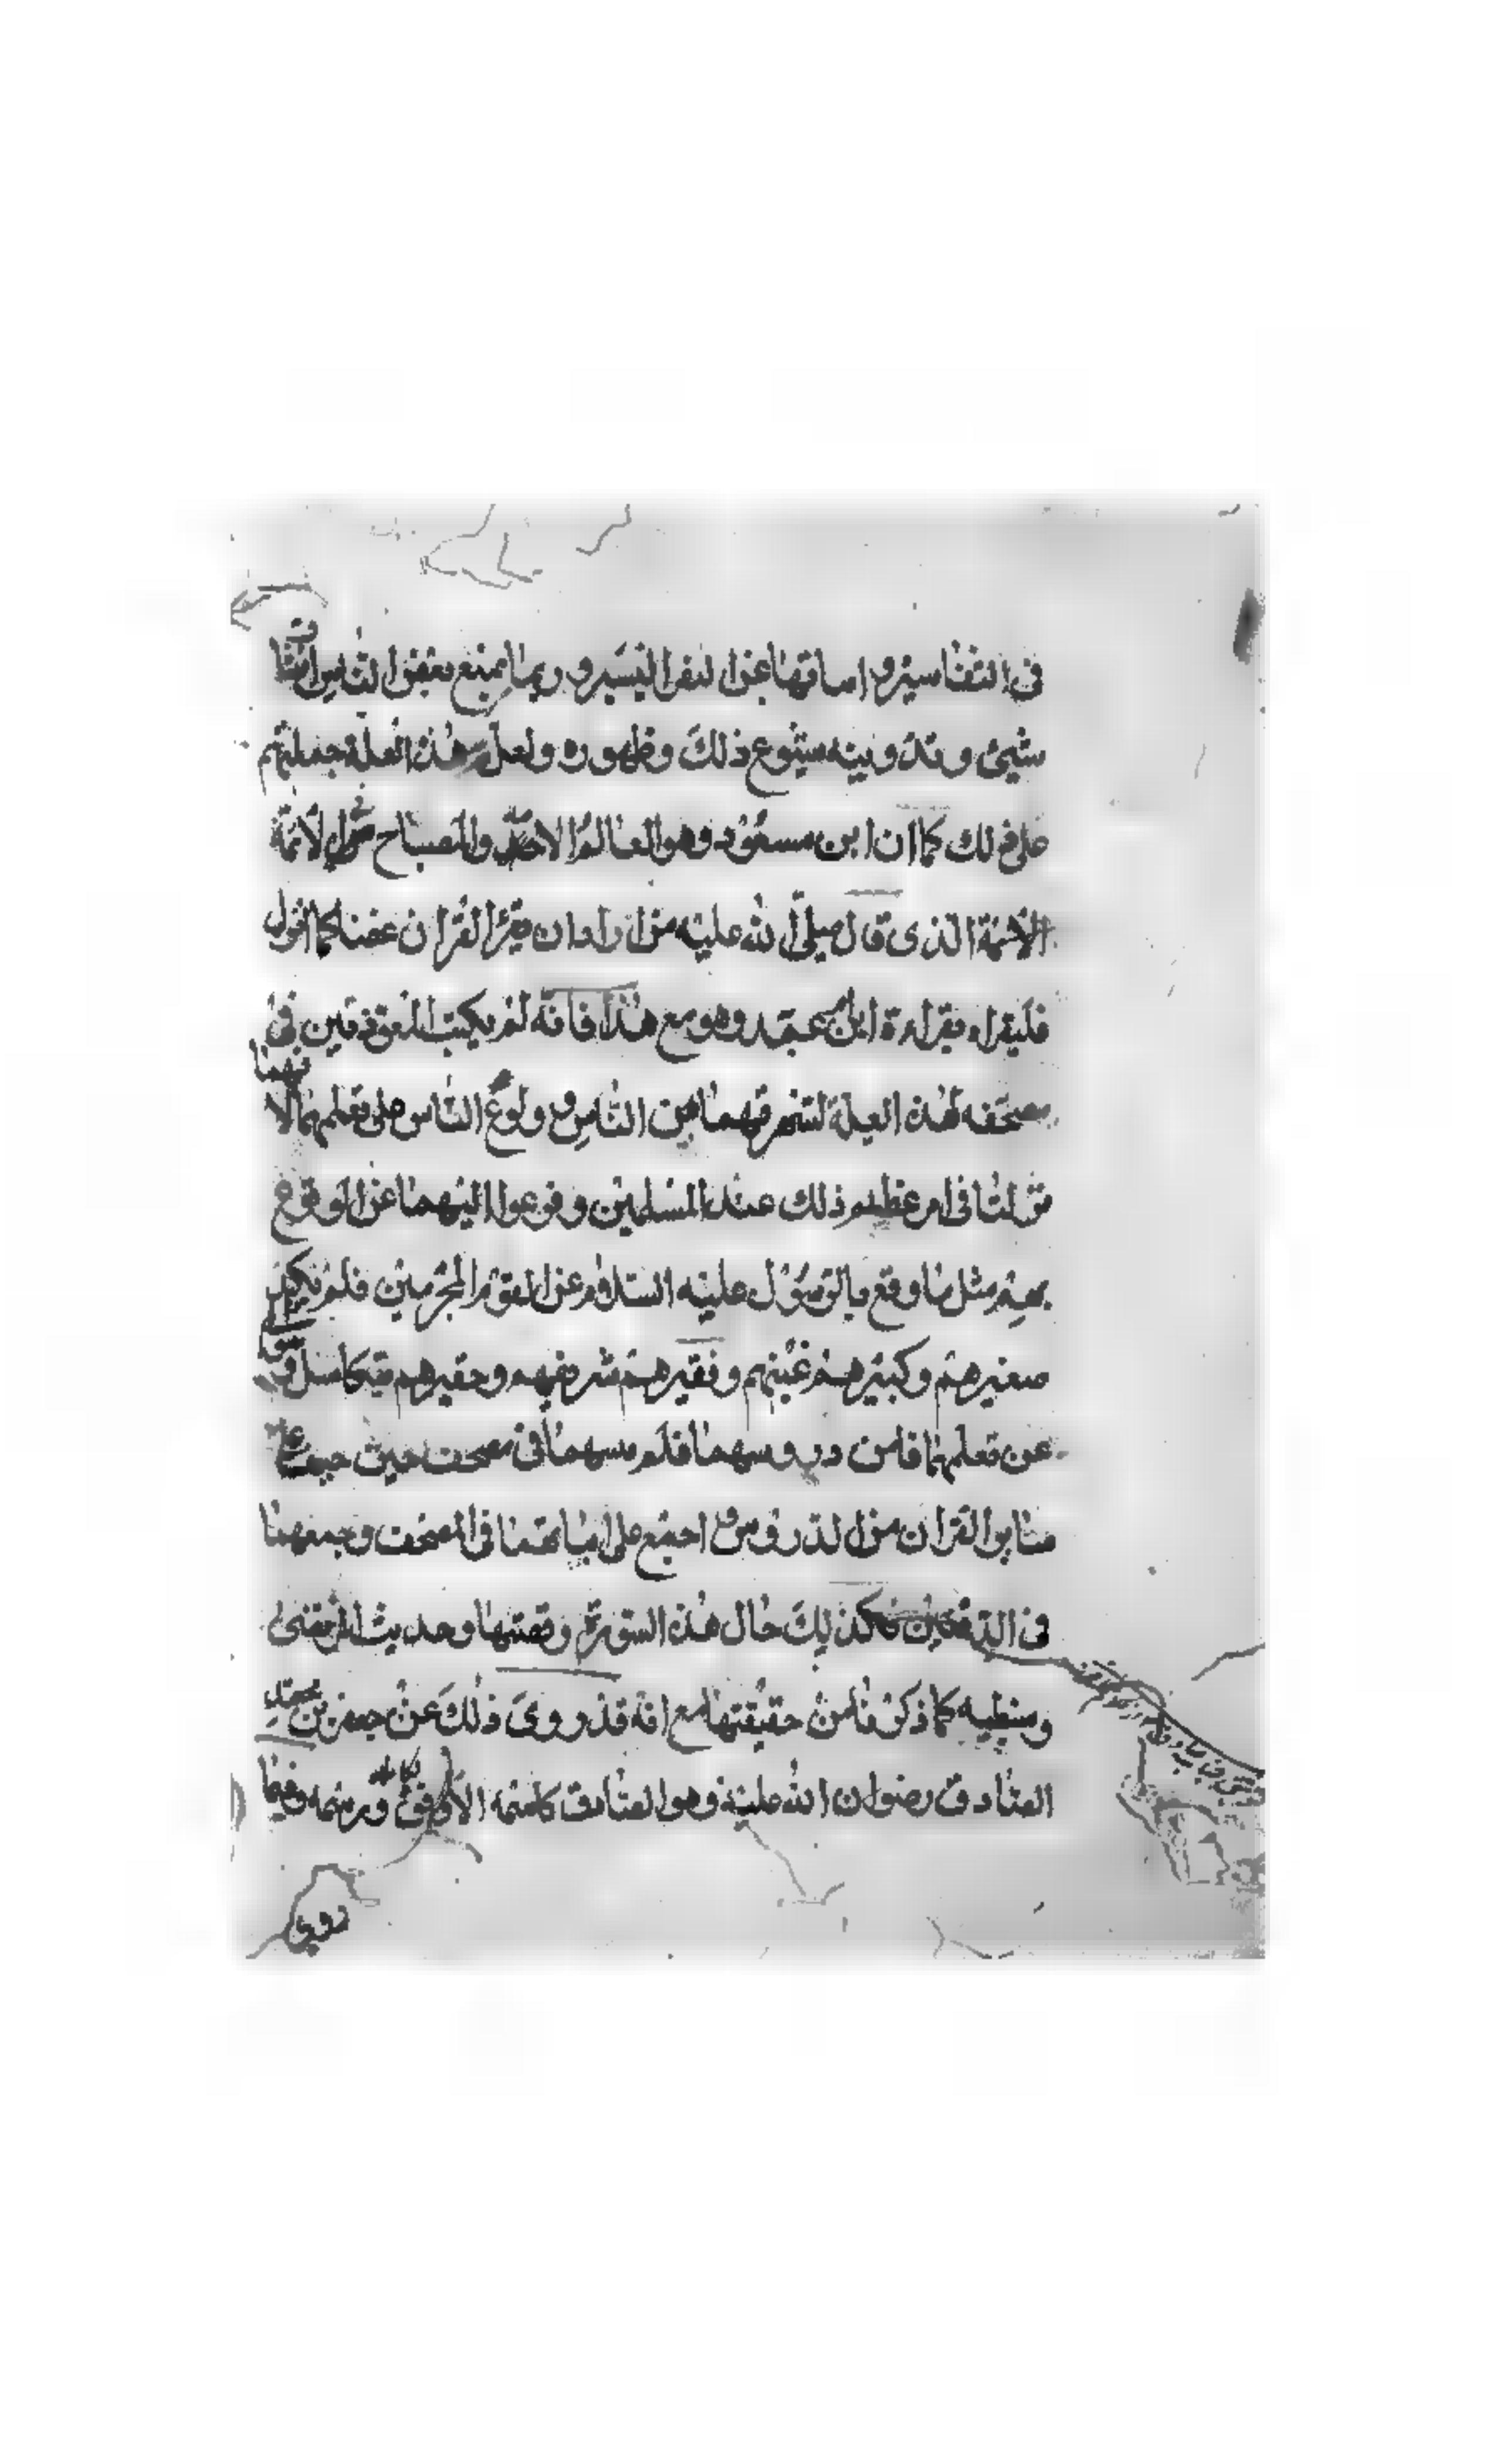 فى التفاسير و اساقها عن النفر اليسير و ربما يمنع بعض الناس اشتا
شيئ و تدوينه شيوع ذلك وظهوره ولعل هذه العلة جملتهم
على ذلك كما ان ابن مسعود وهو العالم والمصباح الائمة
الائمة الذى قال صلى الله عليه من اراد ان يقرأ القران غضا كما انزل
فليقراء بقراءة ابن ام عبد وهو مع هذا فانه لم يكتب المعوذتين فى
مصحفه لهذه العلة من الناس و ولوع الناس على تعلمهما
فى امر عظيم ذلك عند المسلمين وفزعوا اليهما عن الوقوع
بهم مثل ما وقع بالرسول عليه السلام عن القوم المجرمين فلم يكن
صغيرهم وكبيرهم غنيهم وفقيرهم شريفهم وحقيرهم
عن تعلمهما فامن دروسهما فلم يرسمهما فى مصحف حيث
سائر القران من الدروس اجتمع على اثباتهما فى المصحف وجمعهما
فى الدفتين فكذلك حال هذه السورة وقصتها وحديث المرتضى
وسبطيه كما ذكرنا من حقيقتها مع انه قد روى ذلك عن جعفر بن محمد
الصادق رضوان الله عليه وهو الصادق كاسمه
روى